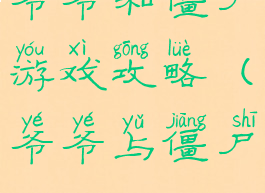 爷爷和僵尸
yóu xì gōng lüè
游戏攻略（
yé yé yǔ jiāng shī
爷爷与僵尸